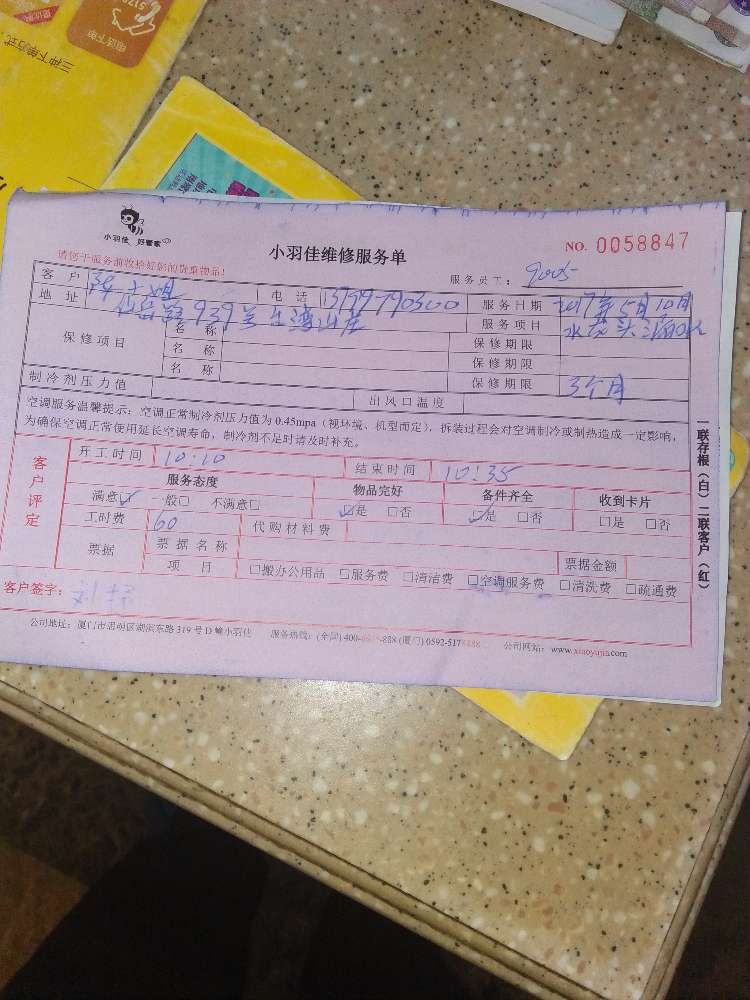 电话下单
三种下单方式
小羽佳 好管家
小羽佳维修服务单
NO. 0058847
请您于服务前收拾好您的贵重物品!
服务员工: 9005
客户 小姐 电话 服务日期 2017年5月10日
地址 939号台湾山庄 服务项目 水龙头漏水
保修项目 名称 保修期限
名称 保修期限
名称 保修期限 3个月
制冷剂压力值 出风口温度
空调服务温馨提示:空调正常制冷剂压力值为 0.45mpa(视环境、机型而定),拆装过程会对空调制冷或制热造成一定影响,
为确保空调正常使用延长空调寿命,制冷剂不足时请及时补充。
客户评定
开工时间 10:10 结束时间 10:35
服务态度 物品完好 备件齐全 收到卡片
满意☑ 一般□ 不满意□ ☑是 □否 ☑是 □否 □是 □否
工时费 60 代购材料费
票据 票据名称 票据金额
项目 □搬办公用品 □服务费 □清洁费 □空调服务费 □清洗费 □疏通费
客户签字:
公司地址:厦门市思明区湖滨东路 319 号 D 幢小羽佳 服务热线:(全国) 400- -888 (厦门) 0592-517 公司网站:www.xiaoyujia.com
一联存根(白) 二联客户(红)